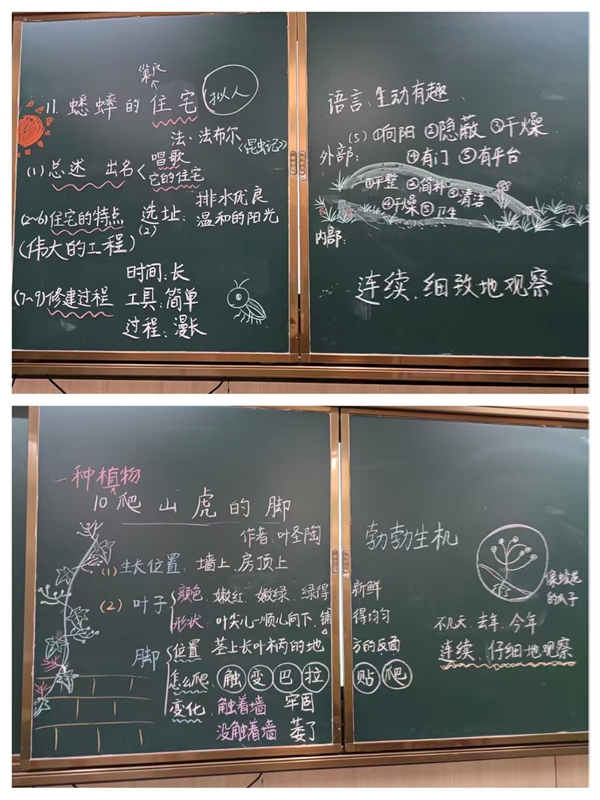 巢穴
11.蟋蟀的住宅
拟人
法·法布尔
《昆虫记》
(1)总述 出名
唱歌
它的住宅
(2~6)住宅的特点
(伟大的工程)
选址:
(2)
排水优良
温和的阳光
(7~9)修建过程
时间:长
工具:简单
过程:漫长
语言:生动有趣
外部:
(5)①向阳 ②隐蔽 ③干燥
④有门 ⑤有平台
①平整 ②简朴 ③清洁
④干燥 ⑤卫生
内部:
连续、细致地观察
一种植物
10.爬山虎的脚
作者:叶圣陶
(1)生长位置:墙上、房顶上
(2)叶子
颜色:嫩红、嫩绿、绿得新鲜
形状:叶尖儿一顺儿向下、铺得均匀
脚
位置:茎上长叶柄的地方的反面
怎么爬:触 变 巴 拉 贴 爬
变化:触着墙 牢固
没触着墙 萎了
勃勃生机
不几天、去年、今年
连续、仔细地观察